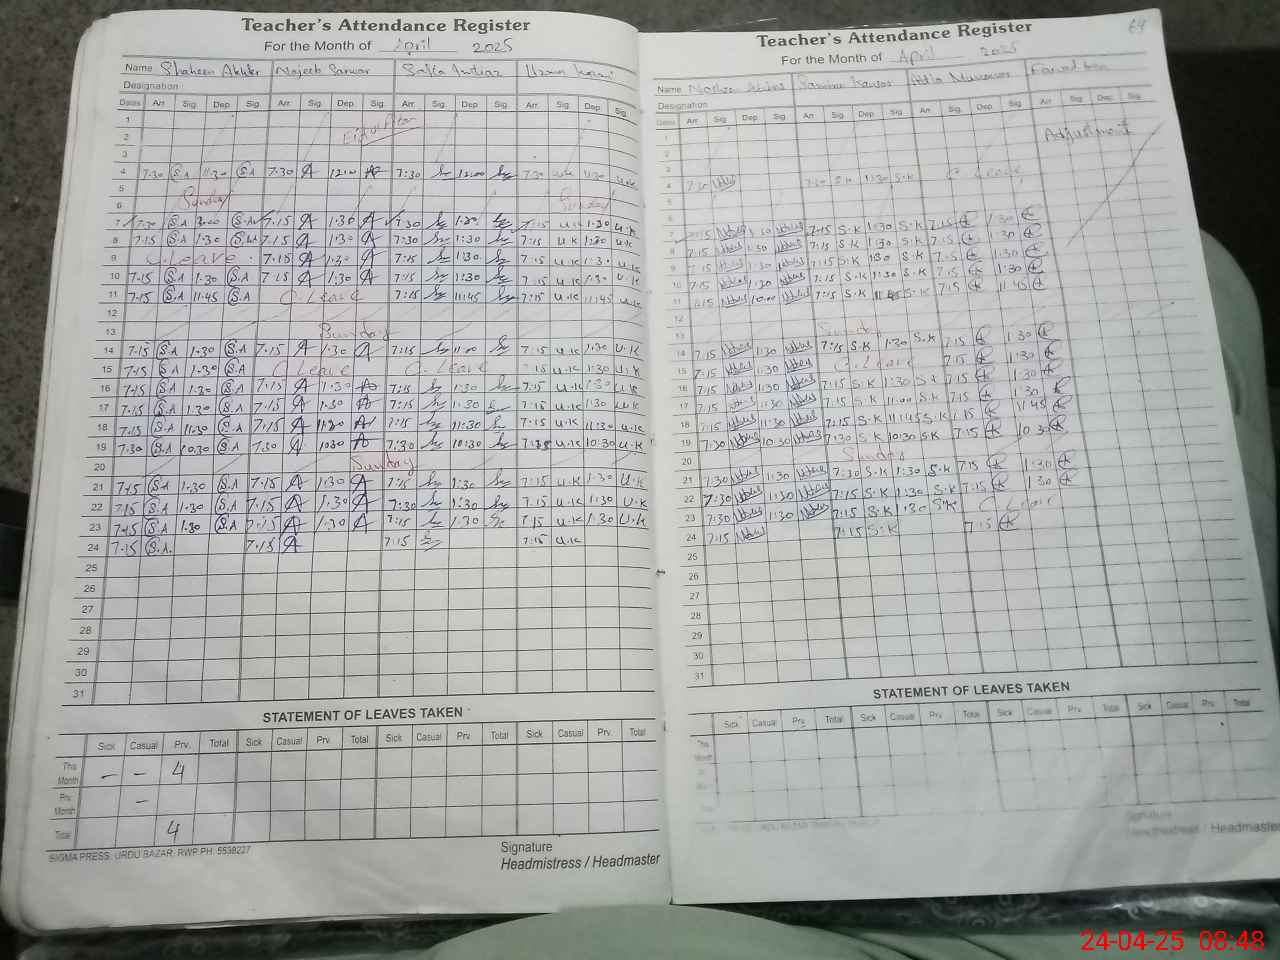 Teacher's Attendance Register
For the Month of April 2025
Name Shaheen Akhter Najeeb Sarwar Safia Imtiaz
Designation
Dates Arr. Sig. Dep. Sig. Arr. Sig. Dep. Sig. Arr. Sig. Dep. Sig. Arr. Sig. Dep. Sig.
1
2 Eid ul Fitar
3
4 7.30 S.A 11:30 S.A 7.30 A 12:00 A 7:30 12:00 7:30 11:30
5
6 Sunday Sunday
7 7:30 S.A S.A 7.15 A 1.30 A 7:30 1:30 7:15 u.k 1:30 u.k
8 7.15 S.A 1.30 S.A 7.15 A 1.30 A 7:30 1:30 7:15 u.k 1:30 u.k
9 C.Leave 7.15 A 1.30 A 7:15 1:30 7.15 u.k 1:30 u.k
10 7.15 S.A 1.30 S.A 7.15 A 1.30 A 7:15 1:30 7.15 u.k 1:30 u.k
11 7.15 S.A 11.45 S.A C.Leave 7:15 11:45 7:15 u.k 11:45 u.k
12
13 Sunday
14 7.15 S.A 1.30 S.A 7.15 A 1.30 A 7:15 11:00 7.15 u.k 1:30 u.k
15 7.15 S.A 1.30 S.A C Leave C. Leave 7.15 u.k 1:30 u.k
16 7.15 S.A 1.30 S.A 7.15 A 1.30 A 7:15 1:30 7:15 u.k 1:30 u.k
17 7.15 S.A 1.30 S.A 7.15 A 1.30 A 7:15 1:30 7:15 u.k 1:30 u.k
18 7.15 S.A 11.30 S.A 7.15 A 11.30 A 7:15 11:30 7.15 u.k 11:30 u.k
19 7.30 S.A 10.30 S.A 7.30 A 10.30 A 7:30 10:30 u.k 10:30 u.k
20 Sunday
21 7.15 S.A 1.30 S.A 7.15 A 1.30 A 7:15 1:30 7.15 u.k 1:30 u.k
22 7.15 S.A 1.30 S.A 7.15 A 1.30 A 7:30 1:30 7.15 u.k 1:30 u.k
23 7.15 S.A 1.30 S.A 7.15 A 1.30 A 7:15 1:30 7.15 u.k 1:30 u.k
24 7.15 S.A. 7.15 A 7:15 7:15 u.k
25
26
27
28
29
30
31
STATEMENT OF LEAVES TAKEN
Sick Casual Prv. Total Sick Casual Prv. Total Sick Casual Prv. Total Sick Casual Prv. Total
This Month – – 4
Prv. Month –
Total 4
SIGMA PRESS, URDU BAZAR, RWP PH: 5538227
Signature
Headmistress / Headmaster
64
Teacher's Attendance Register
For the Month of April 2025
Name Samina Kausar
Designation
Dates Arr. Sig. Dep. Sig. Arr. Sig. Dep. Sig. Arr. Sig. Dep. Sig. Arr. Sig. Dep. Sig.
1 Adjustment
2
3
4 7:30 7:30 S.K 1:30 S.K C Leave
5
6
7 7:15 1:30 7:15 S.K 1:30 S.K 7.15 1:30
8 7:15 1:30 7:15 S.K 1:30 S.K 7.15 1:30
9 7:15 1:30 7:15 S.K 1:30 S.K 7.15 1:30
10 7:15 1:30 7:15 S.K 1:30 S.K 7.15 1:30
11 7:15 7:15 S.K 11:45 S.K 7.15 11:45
12
13 Sunday
14 7:15 1:30 7:15 S.K 1:30 S.K 7.15 1:30
15 7:15 1:30 C. Leave 7.15 1:30
16 7:15 1:30 7:15 S.K 1:30 S.K 7.15 1:30
17 7:15 1:30 7:15 S.K 11:00 S.K 7.15 1:30
18 7:15 11:30 7:15 S.K 11:45 S.K 7.15 11:45
19 7:30 10:30 7:30 S.K 10:30 S.K 7.15 10:30
20 Sunday
21 7:30 1:30 7:30 S.K 1:30 S.K 7.15 1:30
22 7:30 1:30 7:15 S.K 1:30 S.K 7.15 1:30
23 7:30 1:30 7:15 S.K 1:30 S.K C Leave
24 7:15 7:15 S.K 7.15
25
26
27
28
29
30
31
STATEMENT OF LEAVES TAKEN
Sick Casual Prv. Total Sick Casual Prv. Total Sick Casual Prv. Total Sick Casual Prv. Total
This Month
Signature
Headmistress / Headmaster
24-04-25 08:48